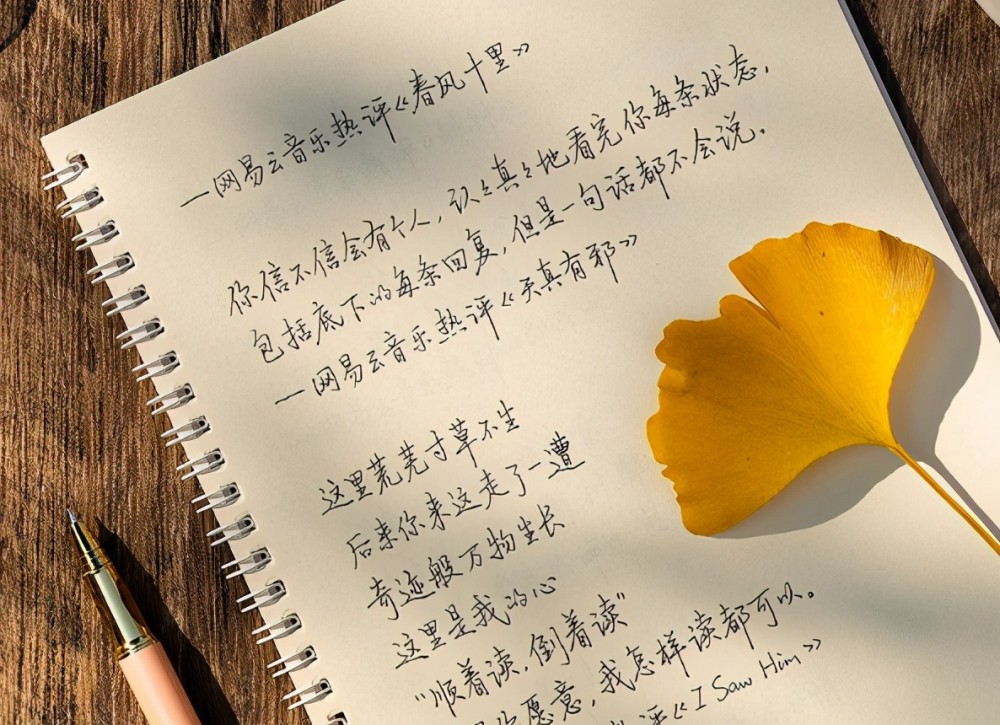 一网易云音乐热评《春风十里》
你信不信会有个人，认々真々地看完你每条状态，
包括底下的每条回复，但是一句话都不会说。
一网易云音乐热评《天真有邪》
这里荒芜寸草不生
后来你来这走了一遭
奇迹般万物生长
这里是我的心
“顺着读，倒着读”
你愿意，我怎样读都可以。
评《I Saw Him》